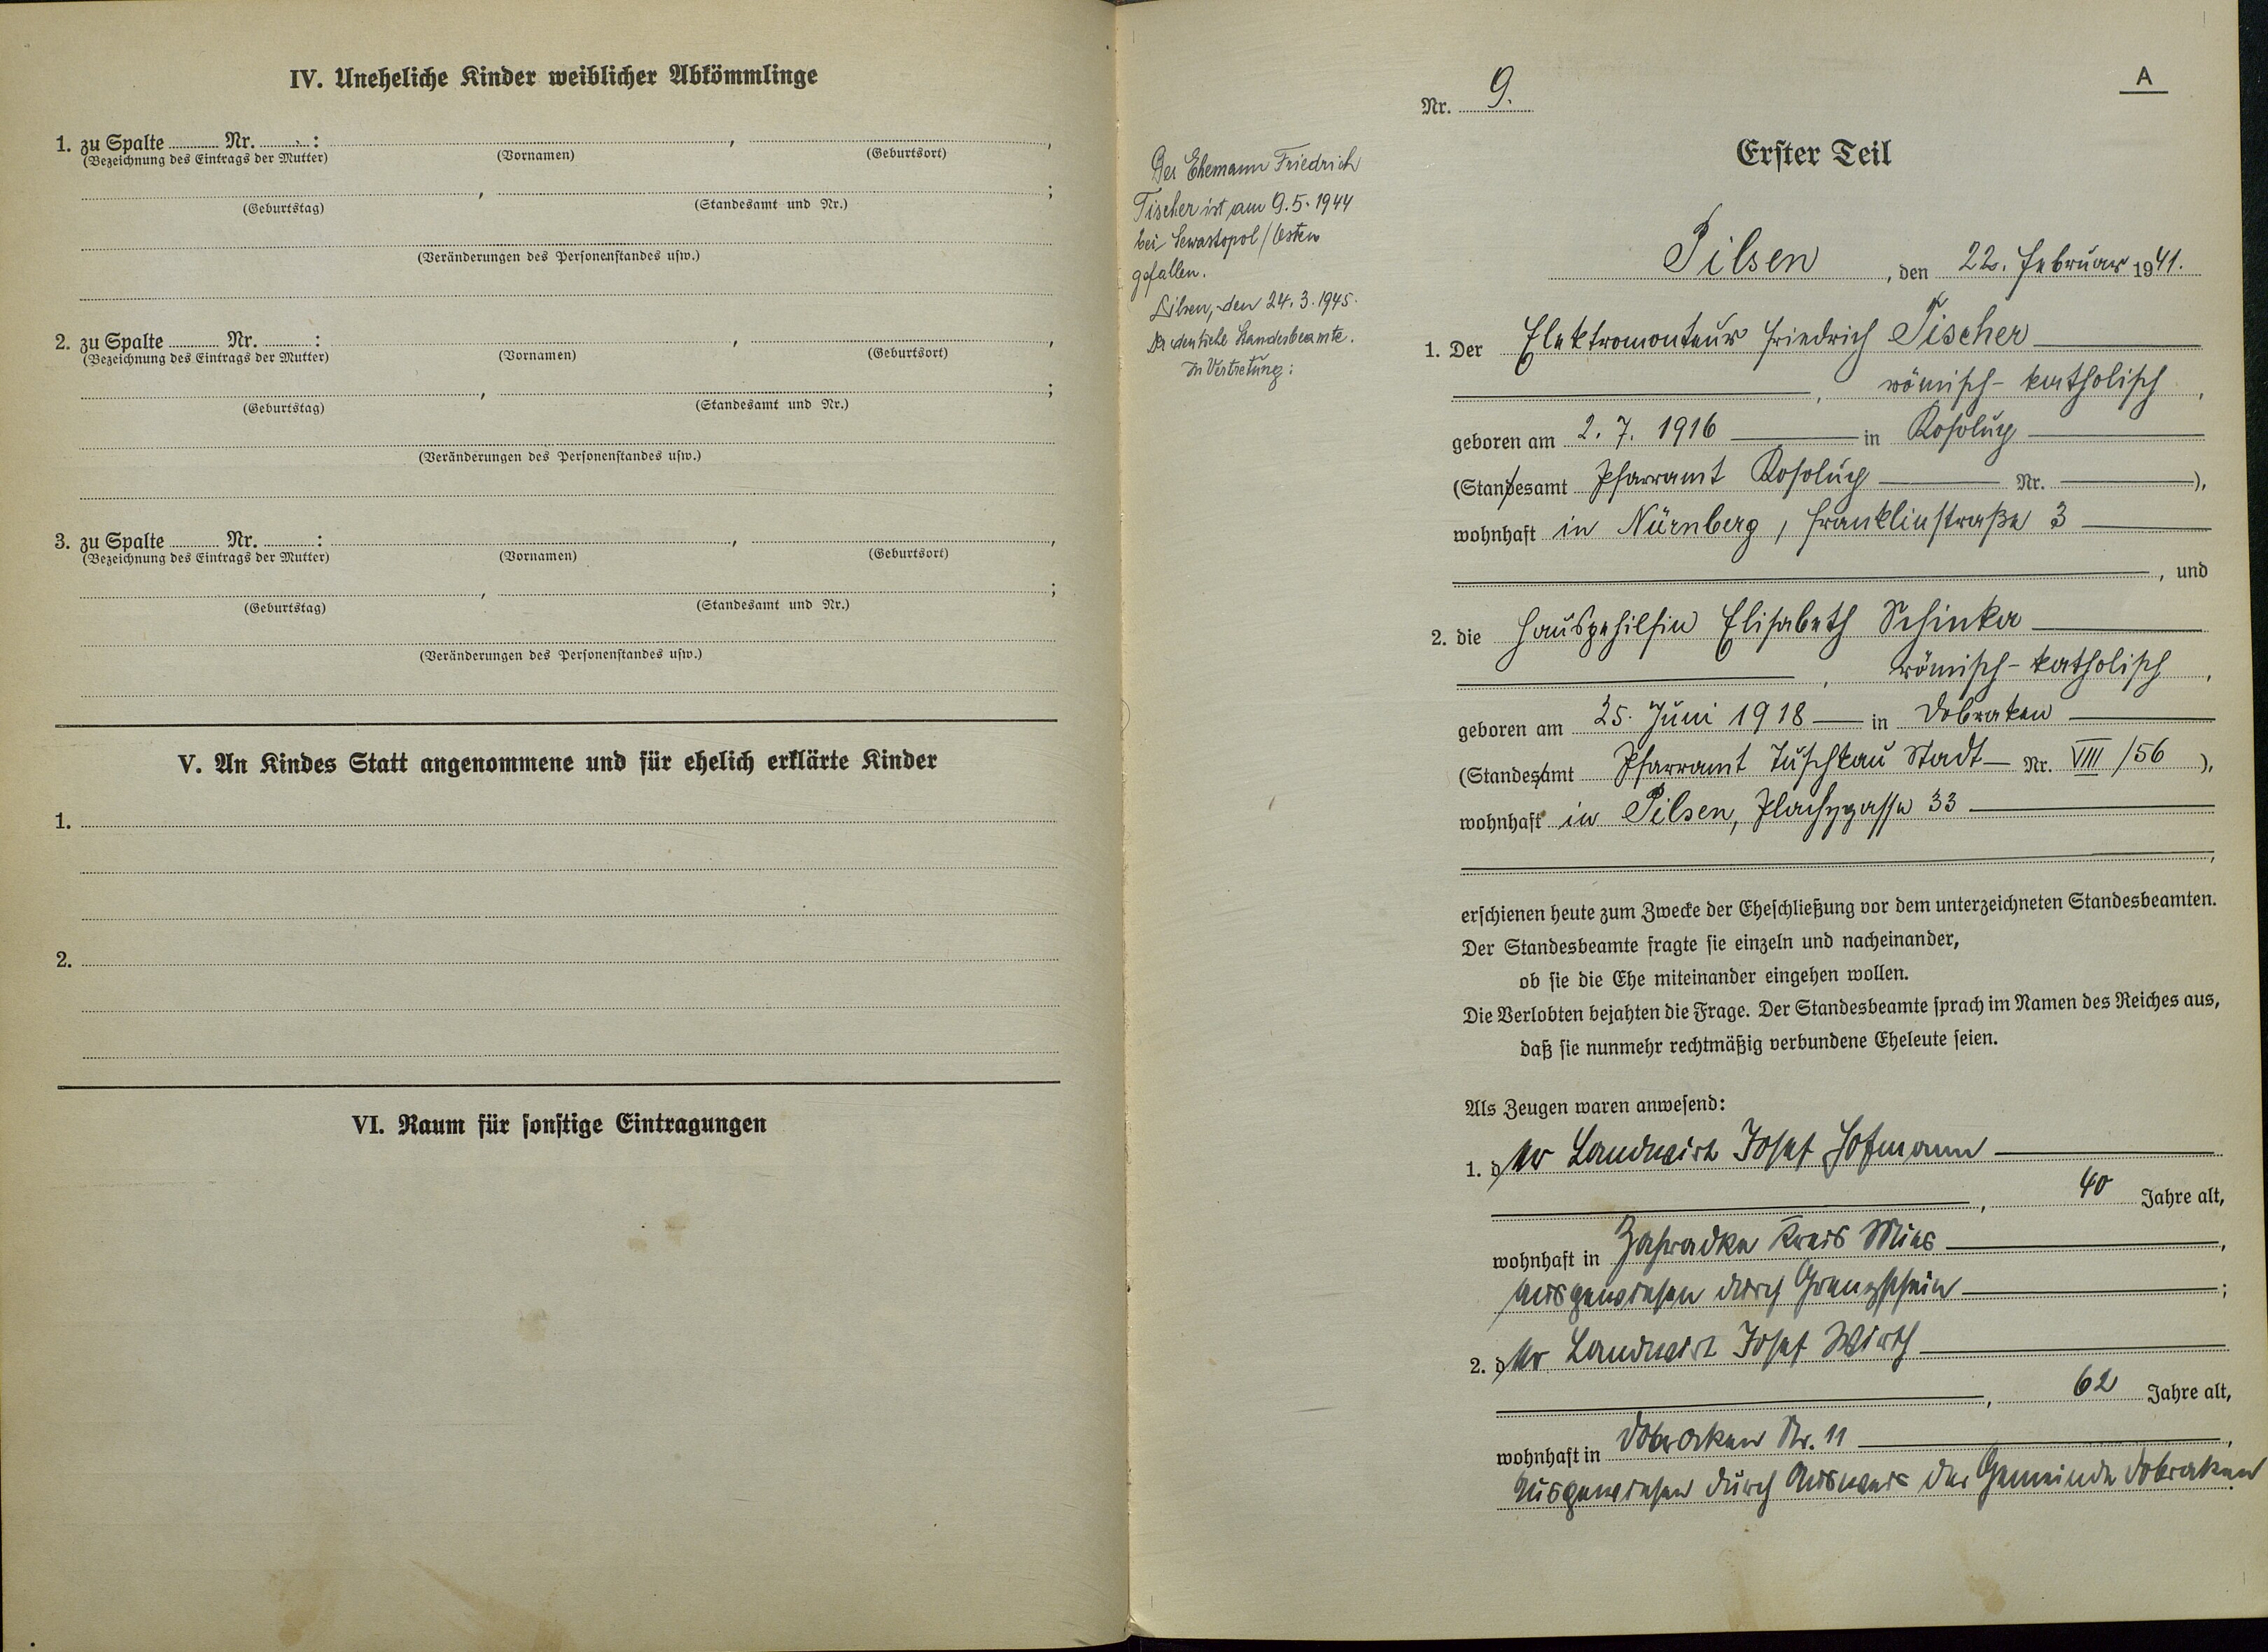 IV. Uneheliche Kinder weiblicher Abkömmlinge
1. zu Spalte ........ Nr. ........ :
(Bezeichnung des Eintrags der Mutter) (Vornamen) , (Geburtsort) ,
(Geburtstag) , (Standesamt und Nr.) ;
(Veränderungen des Personenstandes usw.)
2. zu Spalte ........ Nr. ........ :
(Bezeichnung des Eintrags der Mutter) (Vornamen) , (Geburtsort) ,
(Geburtstag) , (Standesamt und Nr.) ;
(Veränderungen des Personenstandes usw.)
3. zu Spalte ........ Nr. ........ :
(Bezeichnung des Eintrags der Mutter) (Vornamen) , (Geburtsort) ,
(Geburtstag) , (Standesamt und Nr.) ;
(Veränderungen des Personenstandes usw.)
V. An Kindes Statt angenommene und für ehelich erklärte Kinder
1.
2.
VI. Raum für sonstige Eintragungen
A
Nr. 9.
Erster Teil
Der Ehemann Friedrich
Tischer ist am 9.5.1944
bei Sewastopol/Osten
gefallen.
Pilsen, den 24.3.1945.
Der deutsche Standesbeamte.
In Vertretung:
Pilsen, den 22. Februar 1941.
1. Der Elektromonteur Friedrich Tischer
, römisch-katholisch ,
geboren am 2. 7. 1916 in Kosolup
(Standesamt Pfarramt Kosolup Nr. ),
wohnhaft in Nürnberg, Franklinstraße 3
, und
2. die Hausgehilfin Elisabeth Schinka
, römisch-katholisch ,
geboren am 25. Juni 1918 in Dobraken
(Standesamt Pfarramt Tuschkau Stadt Nr. VIII/56 ),
wohnhaft in Pilsen, Plachygasse 33
,
erschienen heute zum Zwecke der Eheschließung vor dem unterzeichneten Standesbeamten.
Der Standesbeamte fragte sie einzeln und nacheinander,
ob sie die Ehe miteinander eingehen wollen.
Die Verlobten bejahten die Frage. Der Standesbeamte sprach im Namen des Reiches aus,
daß sie nunmehr rechtmäßig verbundene Eheleute seien.
Als Zeugen waren anwesend:
1. der Landwirt Josef Hofmann
, 40 Jahre alt,
wohnhaft in Zahradka Kreis Mies ,
ausgewiesen durch Grenzschein ;
2. der Landwirt Josef Wirth
, 62 Jahre alt,
wohnhaft in Dobraken Nr. 11 ,
ausgewiesen durch Ausweis der Gemeinde Dobraken.